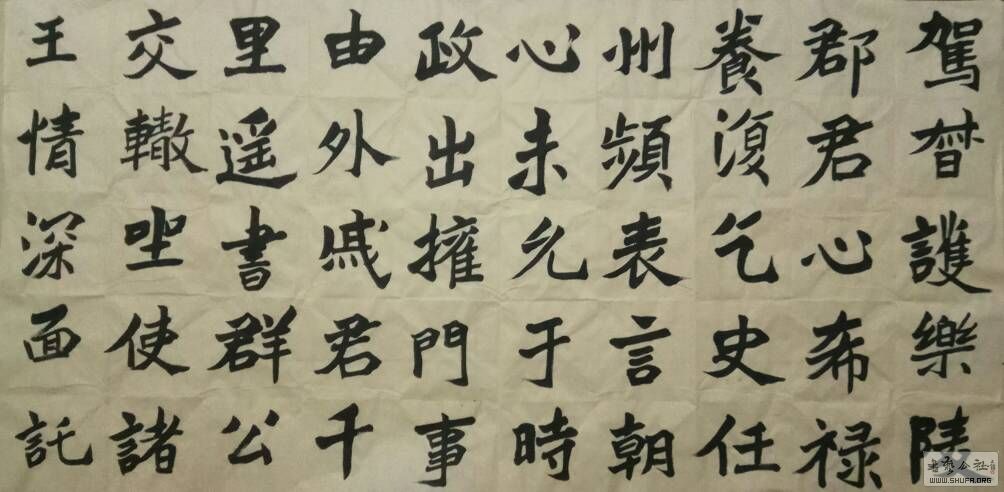 駕督護樂陵
郡君心希禄
養復乞史任
州頻表言朝
心未允于時
政出擁門事
由外戚君千
里遥書群公
交轍坐使諸
王情深面託
WWW.SHUFA.ORG